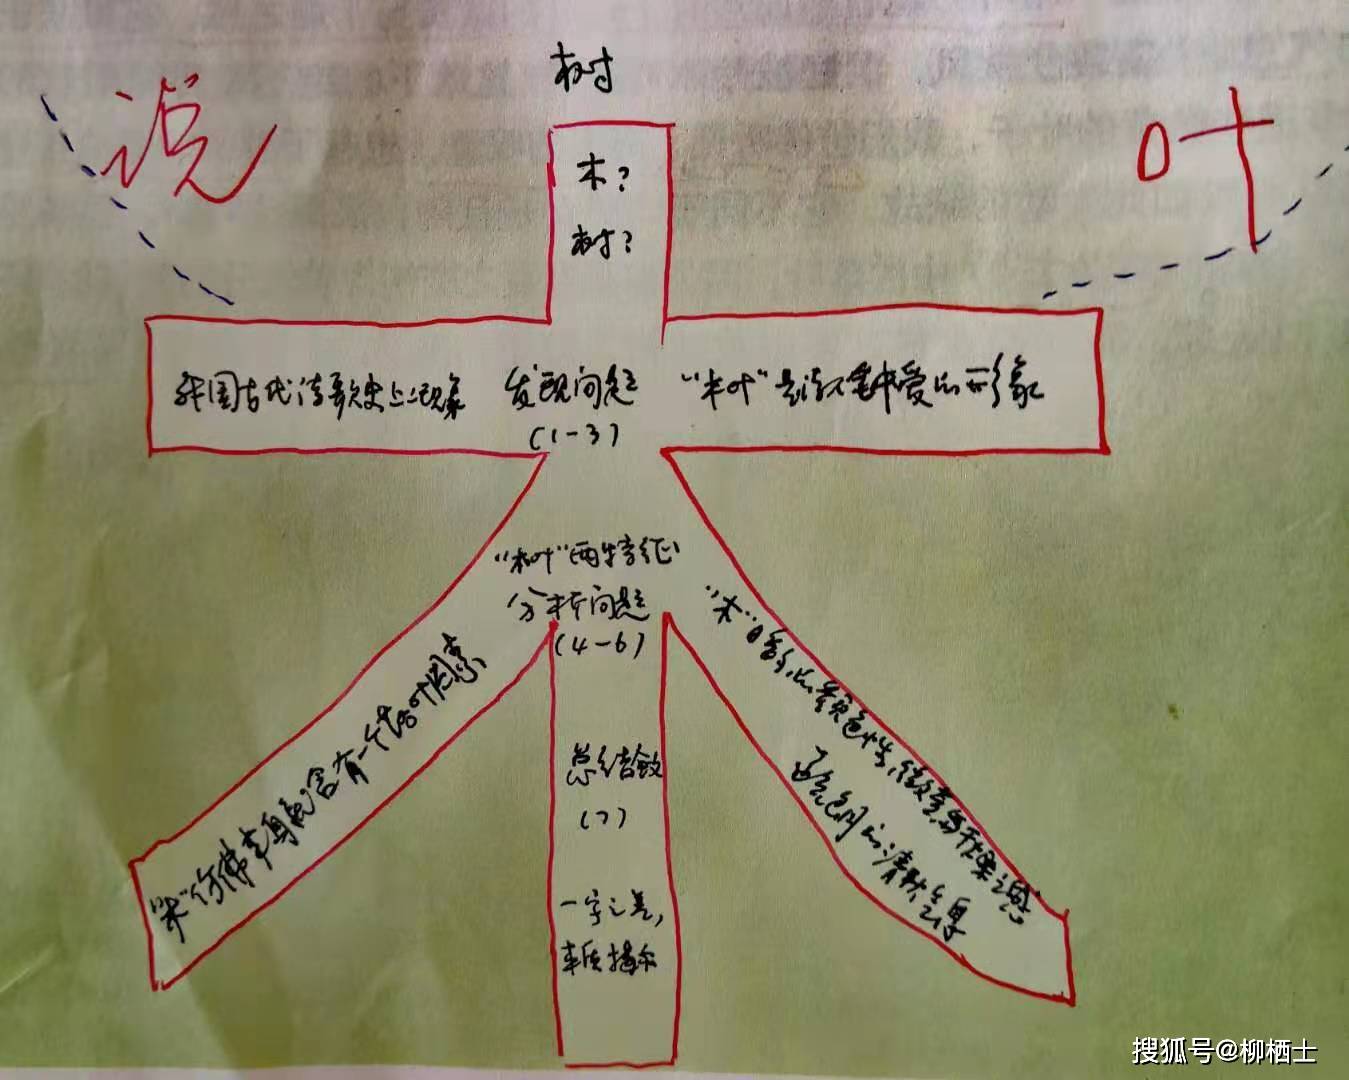 树
说
叶
木?
树?
我国古代诗歌史上之现象
发现问题
(1-3)
"木叶"是诗人笔下钟爱的形象
"木叶"两特征
分析问题
(4-6)
"木"仿佛本身就含有一个落叶因素
"木"暗示的颜色性,微黄与干燥之感
透着色调的清秋气息
总结
(7)
一字之差,
本质揭示
搜狐号@柳栖士